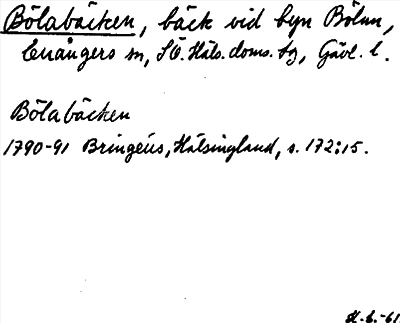 Bölabäcken, bäck vid byn Bölan,
Enångers sn, SÖ. Häls. doms. tg, Gävl. l.
Bölabäcken
1790-91 Bringéus, Hälsingland, s. 172:15.
H.C.-61